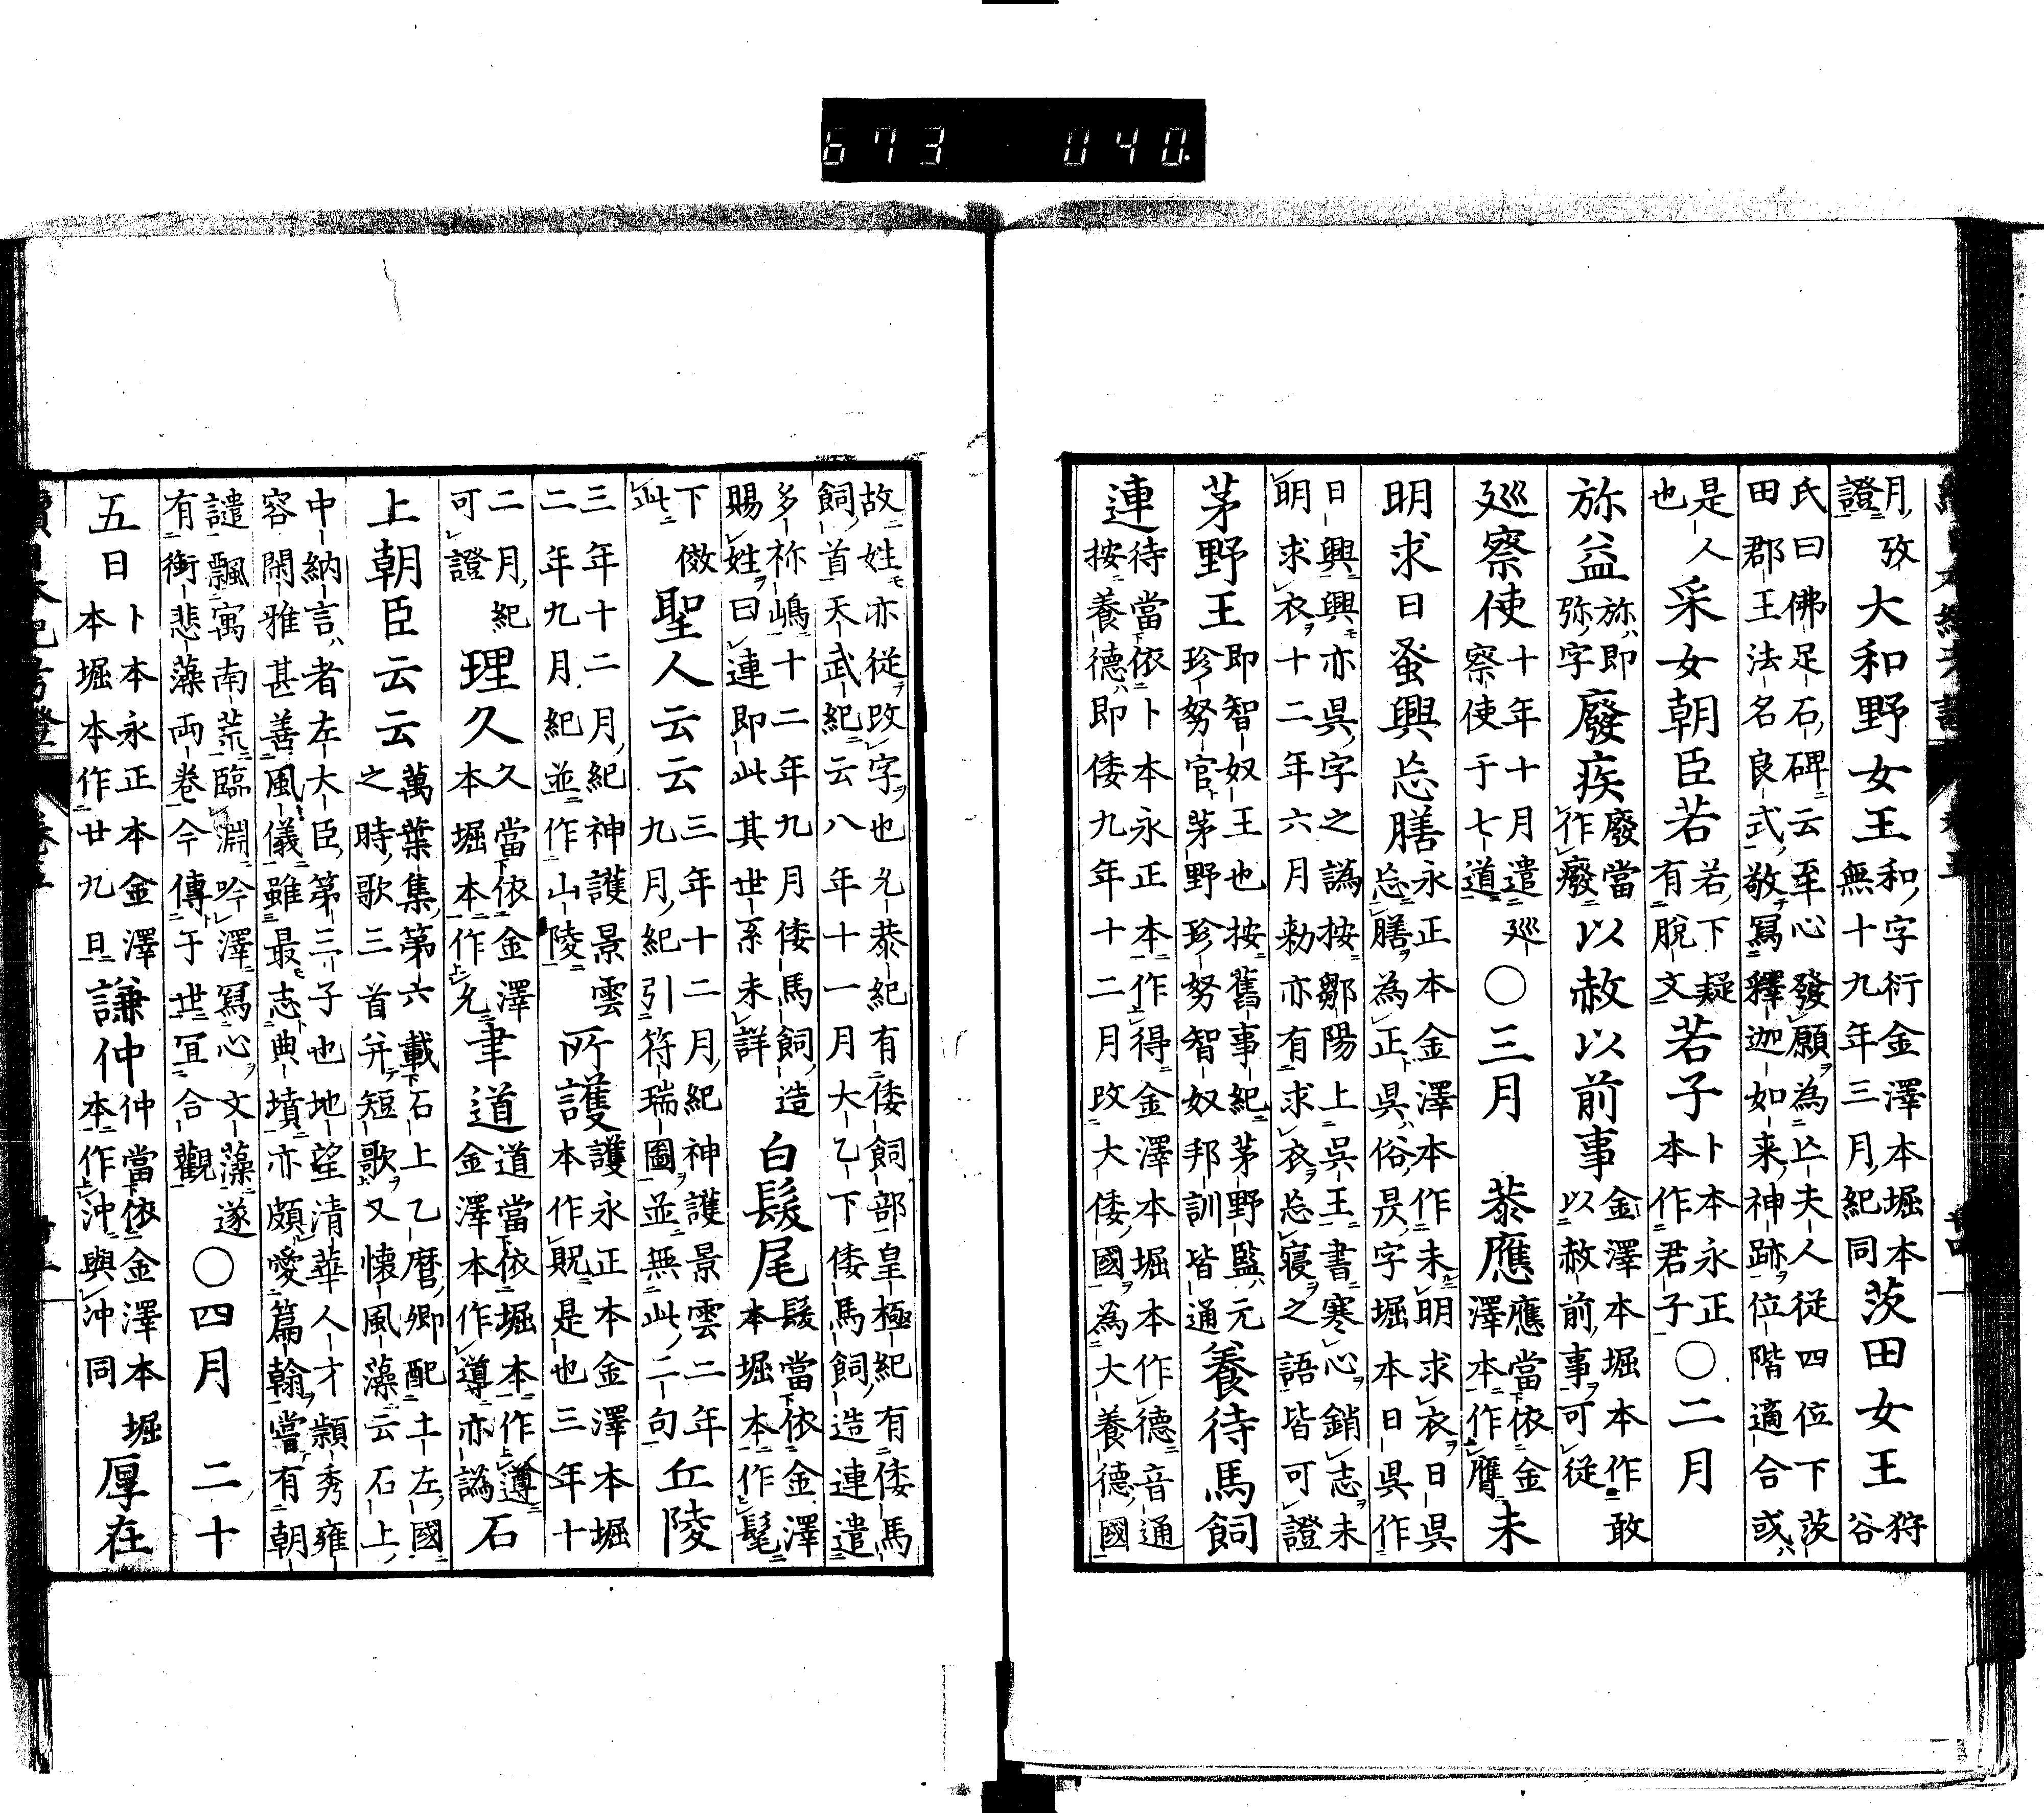 673 040.
月攷證大和野女王和字衍金澤本堀本無十九年三月紀同茨田女王狩谷
氏曰佛足石碑云至心發願為亡夫人從四位下茨田郡王法名良式敬寫釋迦如来神跡位階適合或
是人也采女朝臣若若下疑有脫文若子卜本永正本作君子〇二月
旀益旀即弥字廢疾廢當作癈以赦以前事金澤本堀本作敢以赦前事可從
廵察使十年十月遣廵察使于七道〇三月 恭應應當依金澤本作膺未
明求日蚤興忘膳永正本金澤本作未明求衣日昃忘膳為正昃俗昗字堀本日昃作
日興興亦昃字之譌按鄒陽上吳王書寒心銷志未明求衣十二年六月勅亦有求衣忘寝之語皆可證
茅野王即智奴王也按舊事紀茅野監元珍努官茅野珍努智奴邦訓皆通養待馬飼
連待當依卜本永正本作得金澤本堀本作德音通按養德即倭九年十二月改大倭國為大養德國
故姓亦從改字也允恭紀有倭飼部皇極紀有倭馬飼首天武紀云八年十一月大乙下倭馬飼造連遣
多祢嶋十二年九月倭馬飼造賜姓曰連即此其世系未詳白髮尾髮當依金澤本堀本作髦
下傚此聖人云云三年十二月紀神護景雲二年九月紀引符瑞圖並無此二句丘陵
三年十二月紀神護景雲二年九月紀並作山陵所護護永正本金澤本堀本作貺是也三年十
二月紀可證理久久當依金澤本堀本作允聿道道當依堀本作遵金澤本作導亦譌石
上朝臣云云萬葉集第六載石上乙麿卿配土左國之時歌三首并短歌又懐風藻云石上
中納言者左大臣第三子也地望清華人才穎秀雍容閑雅甚善風儀雖最志典墳亦頗愛篇翰嘗有朝
譴飄寓南荒臨淵吟澤寫心文藻遂有銜悲藻兩卷今傳于世冝合觀〇四月 二十
五日卜本永正本金澤本堀本作廿九旦謙仲仲當依金澤本堀本作沖與冲同厚在